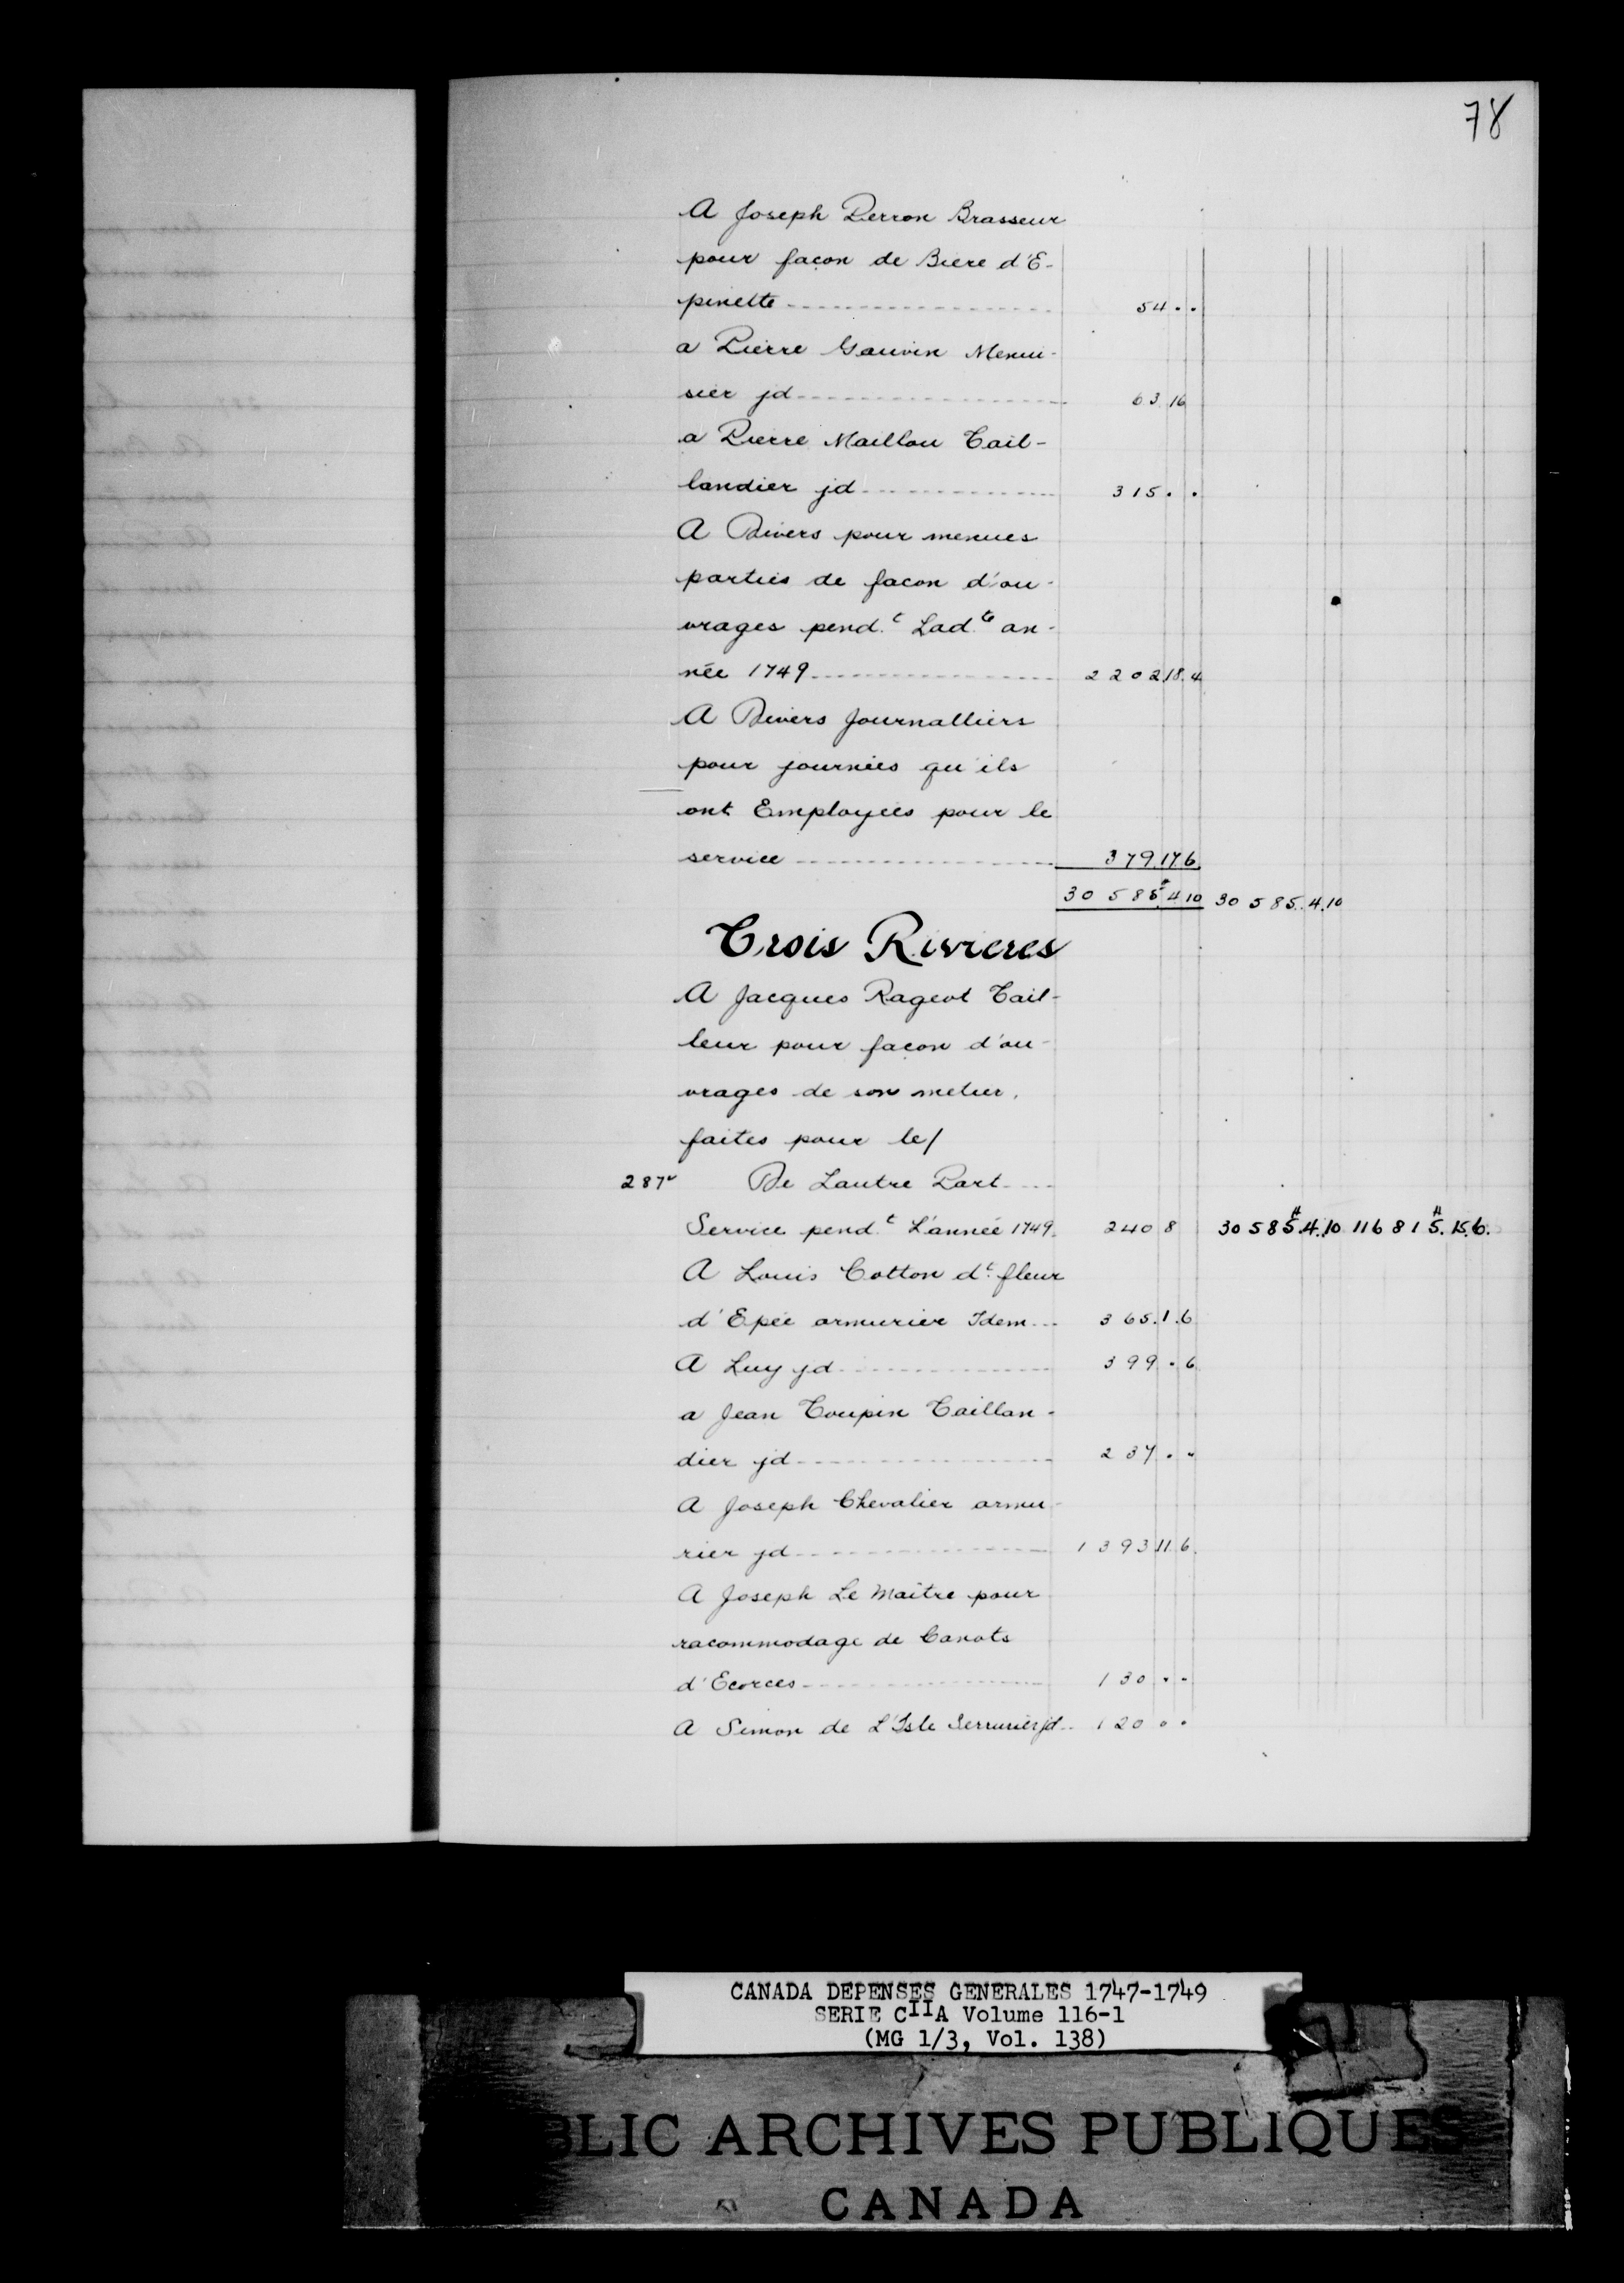 78
A Joseph Perron Brasseur
pour façon de Biere d'E-
pinette 54 . .
a Pierre Gauvin Menui-
sier jd 63 16
a Pierre Maillou Tail-
landier jd 315 . .
A Divers pour menues
parties de facon d'ou-
vrages pend.t Lad.te an-
née 1749 2202.18.4
A Divers Journalliers
pour journées qu'ils
ont Employées pour le
service 379.17.6.
30 585.4 10 30 585.4.10
Trois Rivieres
A Jacques Rageot Tail-
leur pour façon d'ou-
vrages de son metier,
faites pour le/
287v De Lautre Part
Service pend.t L'année 1749. 240 8 30 585.4.10 116 815.15.6.
A Louis Cotton d.t fleur
d'Epée armurier Idem 365.1.6
A Luy jd 399 . 6
a Jean Toupin Taillan-
dier jd 237 . .
A Joseph Chevalier armu-
rier jd 1393 11 6.
A Joseph Le Maitre pour
racommodage de Canots
d'Ecorces 130 . .
A Simon de L'Isle Serrurier jd 120 . .
CANADA DEPENSES GENERALES 1747-1749
SERIE CIIA Volume 116-1
(MG 1/3, Vol. 138)
BLIC ARCHIVES PUBLIQUES
CANADA